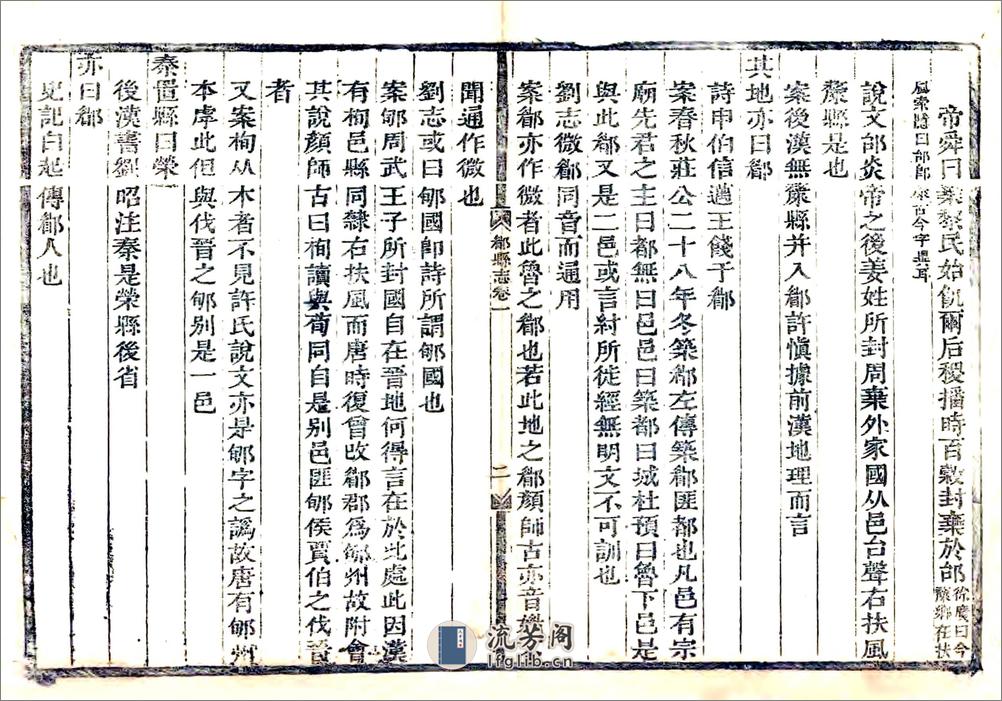 帝舜曰棄黎民始飢爾后稷播時百穀封棄於邰徐廣曰今斄鄉在扶
風索隱曰邰即斄古今字異耳
說文邰炎帝之後姜姓所封周棄外家國从邑台聲右扶風
斄縣是也
案後漢無斄縣并入郿許愼據前漢地理而言
其地亦曰郿
詩申伯信邁王餞于郿
案春秋莊公二十八年冬築郿左傳築郿匪都也凡邑有宗
廟先君之主曰都無曰邑邑曰築都曰城杜預曰魯下邑是
與此郿又是二邑或言紂所徙經無明文不可訓也
劉志微郿同音而通用
案郿亦作微者此魯之郿也若此地之郿顏師古亦音媚
郿縣志卷一
二
聞通作微也
劉志或曰郇國即詩所謂郇國也
案郇周武王子所封國自在晉地何得言在於此處此因漢
有栒邑縣同隸右扶風而唐時復曾改郿郡爲郇州故附會
其說顏師古曰栒讀與荀同自是別邑匪郇侯賈伯之伐晉
者
又案栒从木者不見許氏說文亦是郇字之譌故唐有郇州
本虖此但與伐晉之郇別是一邑
秦置縣曰榮
後漢書劉昭注秦是榮縣後省
亦曰郿
史記白起傳郿人也
流芳阁
lfglib.cn